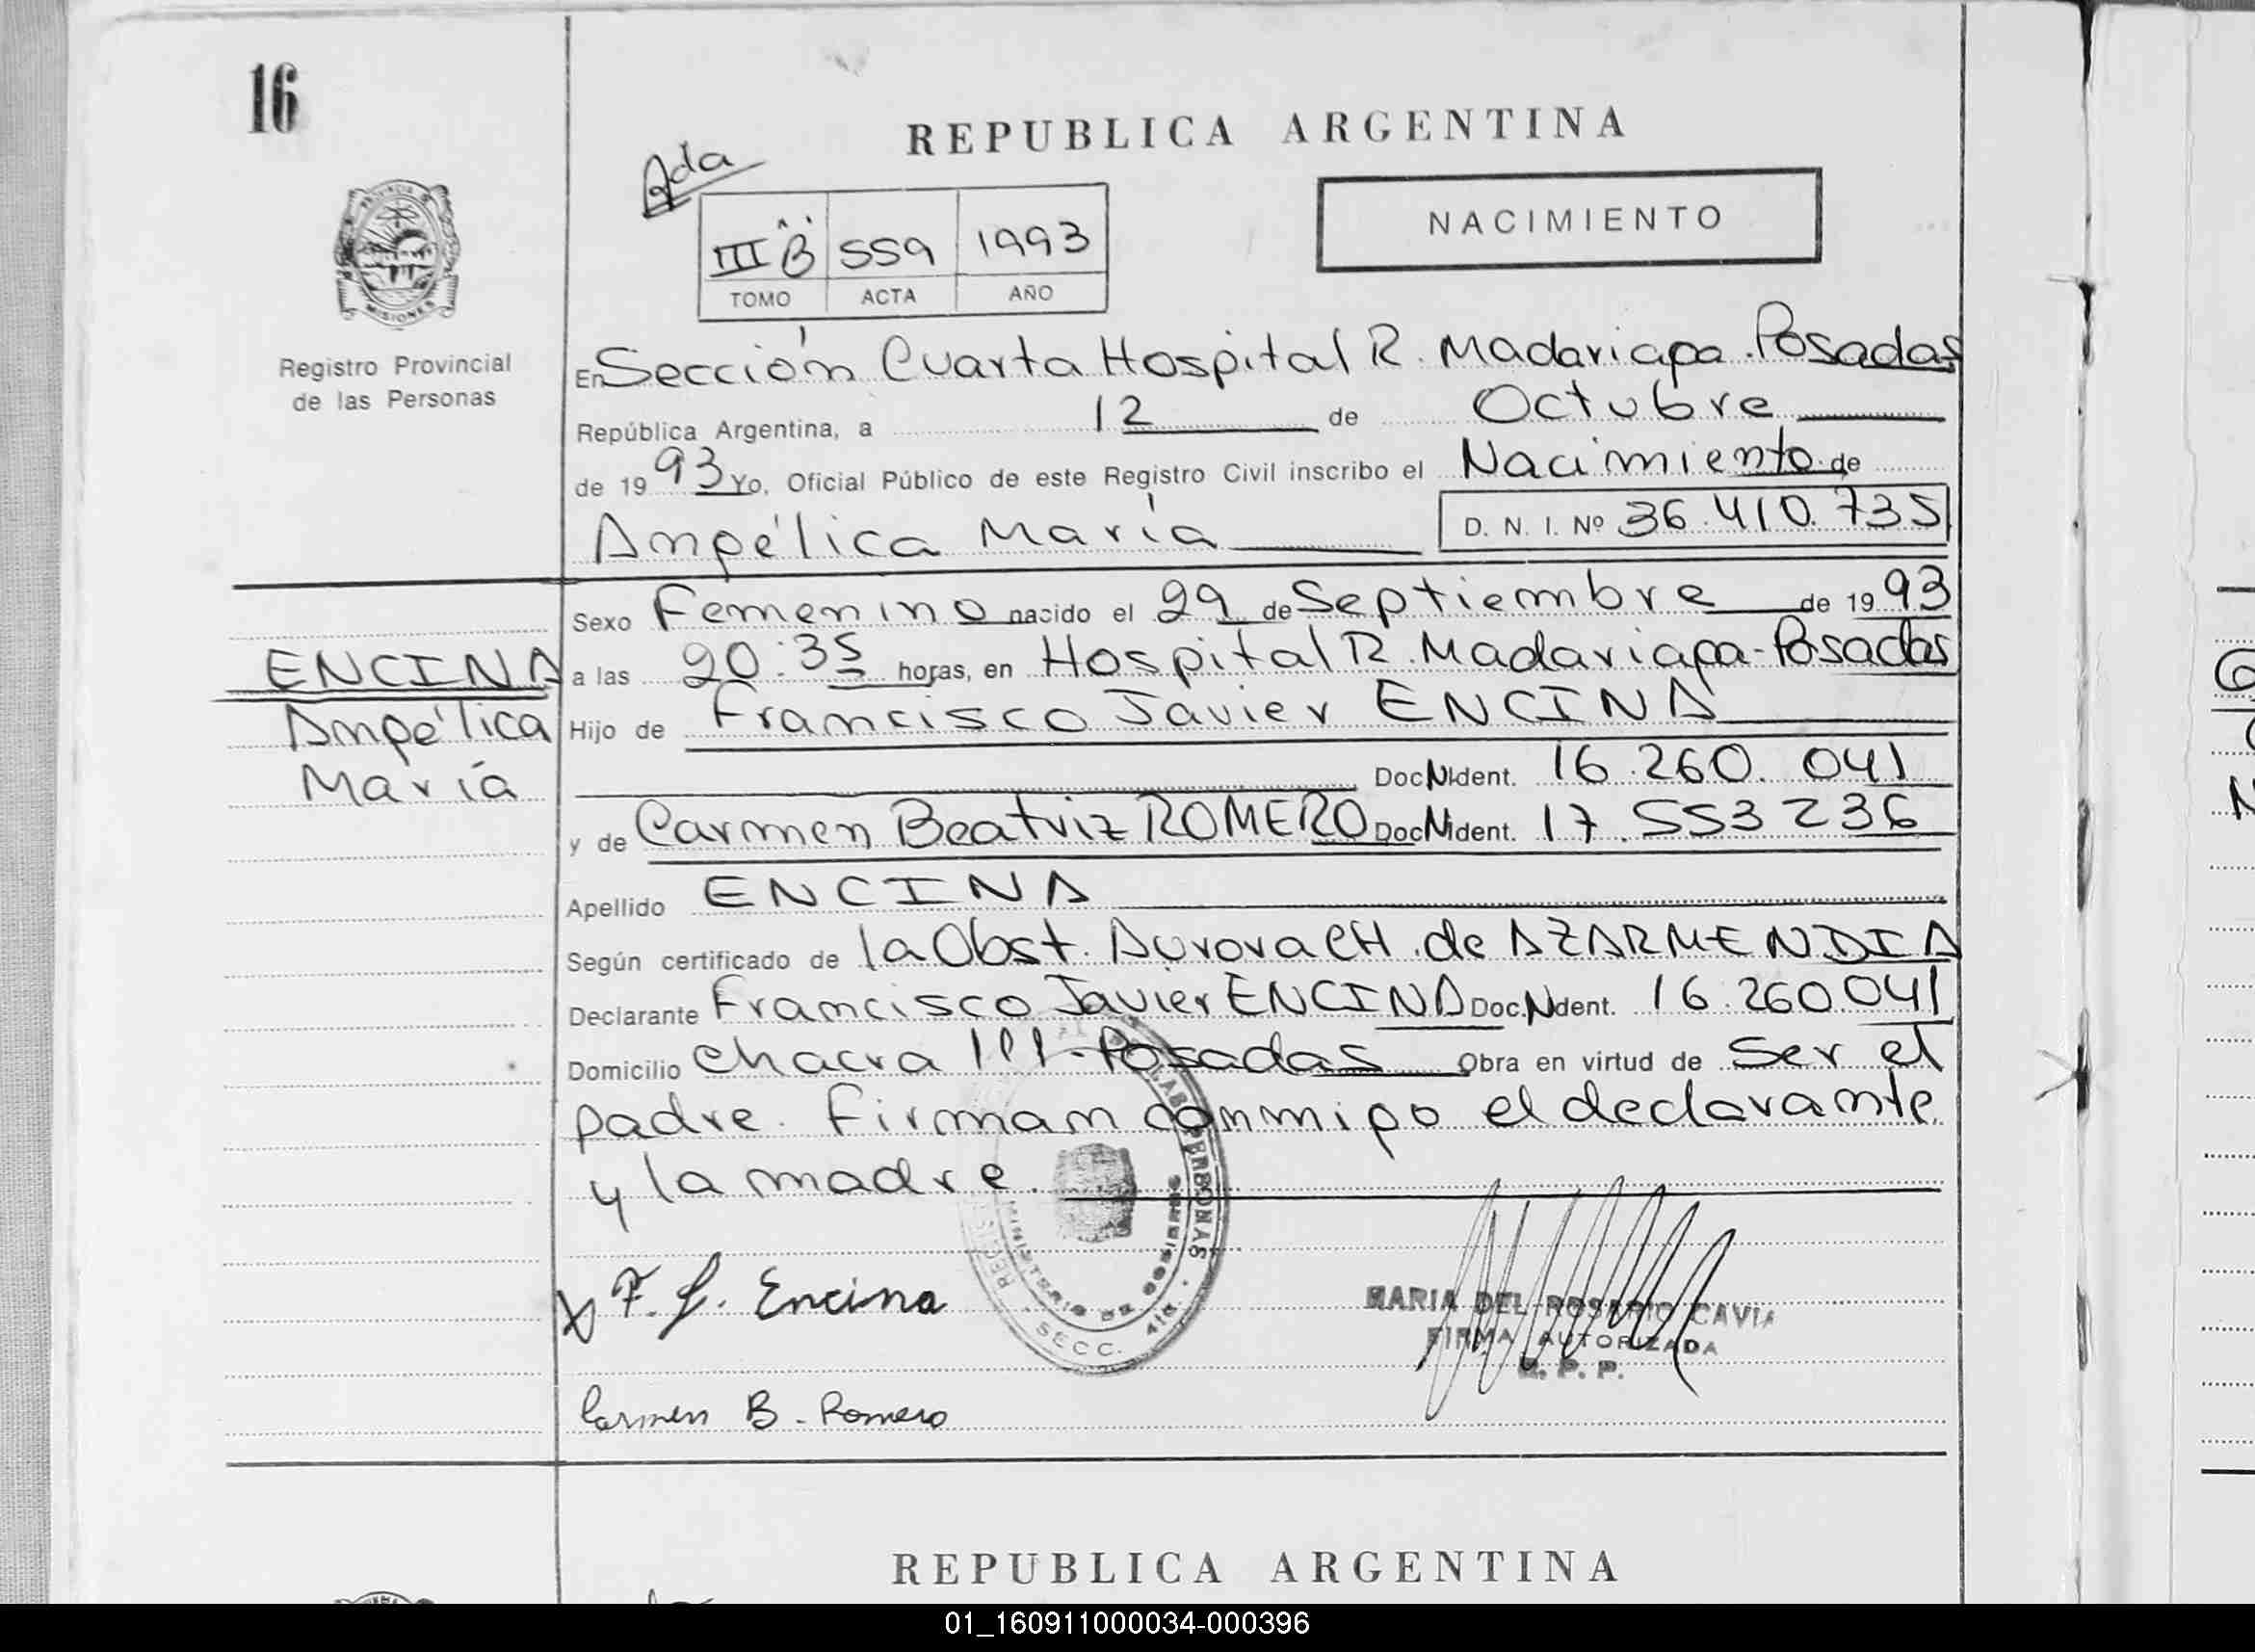 16
REPUBLICA ARGENTINA
Ada
NACIMIENTO
III B 559 1993
TOMO ACTA AÑO
PROVINCIA DE
MISIONES
Registro Provincial
de las Personas
En Sección Cuarta Hospital R. Madariaga. Posadas
República Argentina, a 12 de Octubre
de 1993 Yo, Oficial Público de este Registro Civil inscribo el Nacimiento de
Angélica María D. N. I. Nº 36.410.735
Sexo Femenino nacido el 29 de Septiembre de 1993
a las 20:35 horas, en Hospital R. Madariaga - Posadas
Hijo de Francisco Javier ENCINA
Doc. N Ident. 16.260.041
y de Carmen Beatriz ROMERO Doc. N Ident. 17.553 236
Apellido ENCINA
Según certificado de la Obst. Aurora CH. de AZARMENDIA
Declarante Francisco Javier ENCINA Doc. N Ident. 16.260.041
Domicilio Chacra 111 - Posadas Obra en virtud de Ser el
padre. Firman conmigo el declarante
y la madre.
ENCINA
Angélica
María
F. J. Encina
Carmen B. Romero
MINISTERIO DE GOBIERNO
SECC. 4ta
MARIA DEL ROSARIO CAVIA
FIRMA AUTORIZADA
R. P. P.
REPUBLICA ARGENTINA
01_160911000034-000396